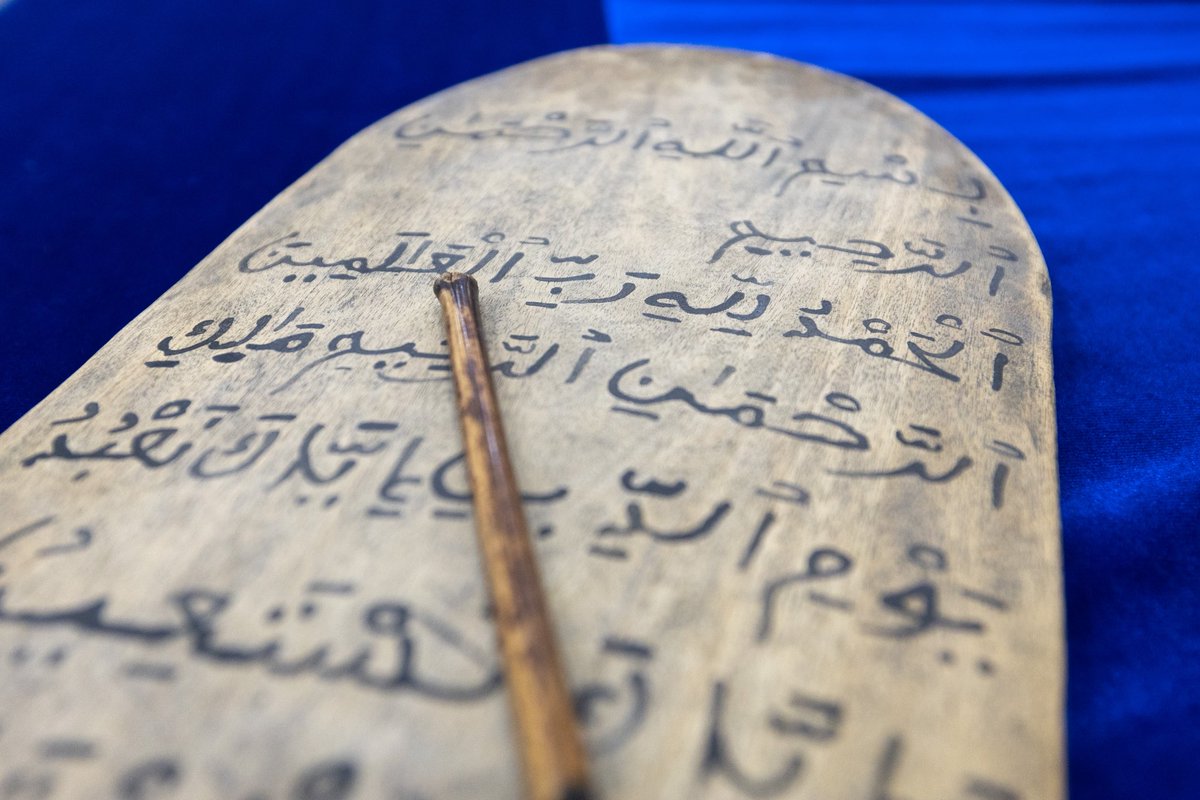 بِسْمِ اِ۬للَّهِ اِ۬لرَّحْمَٰنِ
اِ۬لرَّحِيمِ
اَ۬لْحَمْدُ لِلهِ رَبِّ اِ۬لْعَٰلَمِينَ
اَ۬لرَّحْمَٰنِ اِ۬لرَّحِيمِ مَٰلِكِ
يَوْمِ اِ۬لدِّينِ إِيَّاكَ نَعْبُدُ
وَإِيَّاكَ نَسْتَعِينُ